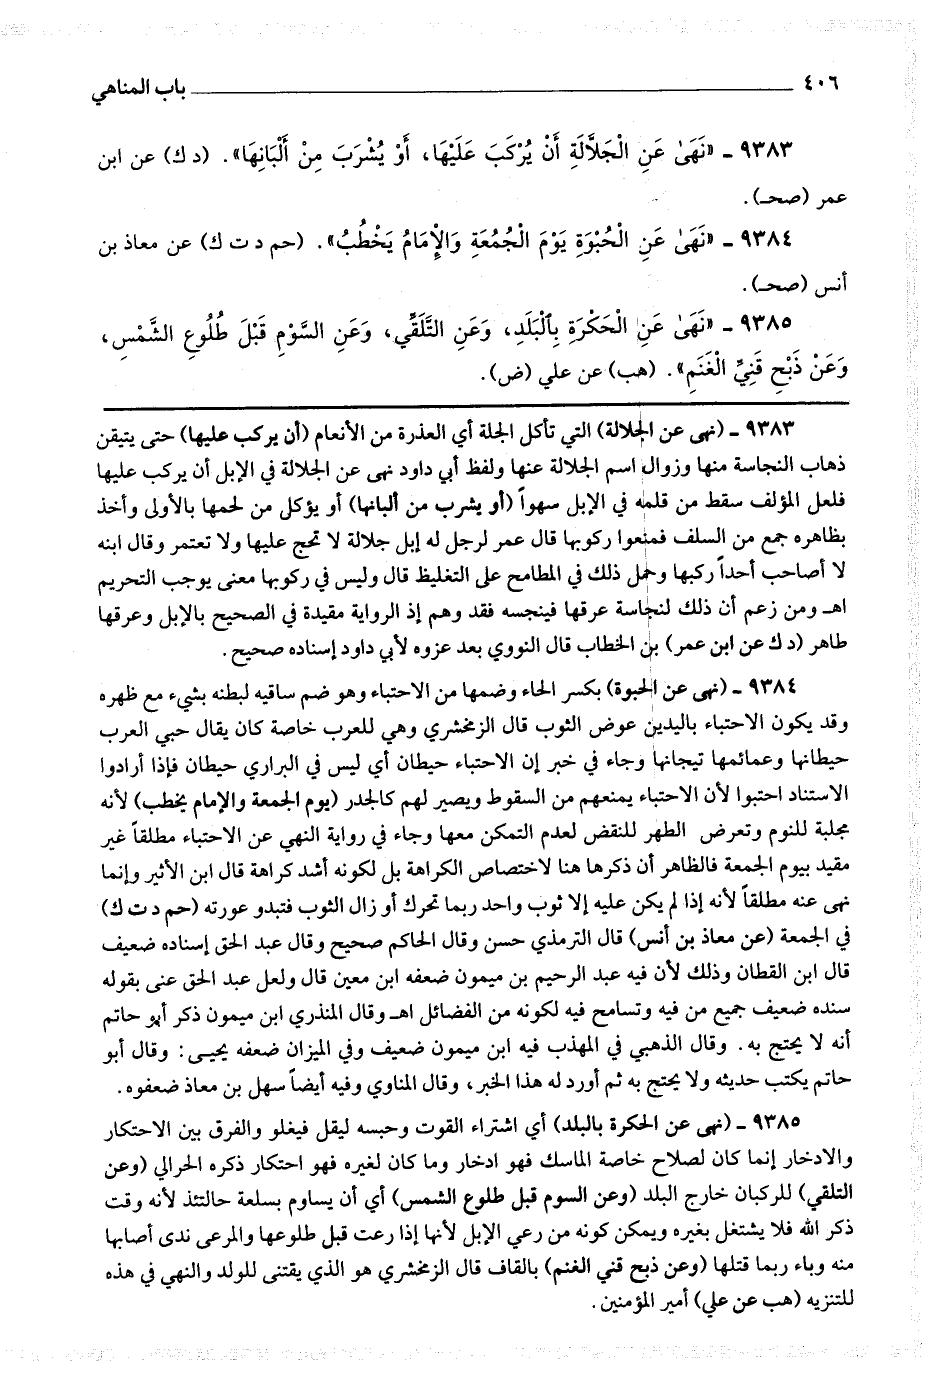 ٤٠٦ باب المناهي
٩٣٨٣ ـ «نَهَىٰ عَنِ الْجَلاَّلَةِ أَنْ يُرْكَبَ عَلَيْهَا، أَوْ يُشْرَبَ مِنْ أَلْبَانِهَا». (د ك) عن ابن
عمر (صحـ).
٩٣٨٤ ـ «نَهَىٰ عَنِ الْحُبْوَةِ يَوْمَ الْجُمُعَةِ وَالْإِمَامُ يَخْطُبُ». (حم د ت ك) عن معاذ بن
أنس (صحـ).
٩٣٨٥ ـ «نَهَىٰ عَنِ الْحَكْرَةِ بِالْبَلَدِ، وَعَنِ التَّلَقِّي، وَعَنِ السَّوْمِ قَبْلَ طُلُوعِ الشَّمْسِ،
وَعَنْ ذَبْحِ قَنِيِّ الْغَنَمِ». (هب) عن علي (ض).
٩٣٨٣ ـ (نهى عن الجلالة) التي تأكل الجلة أي العذرة من الأنعام (أن يركب عليها) حتى يتيقن
ذهاب النجاسة منها وزوال اسم الجلالة عنها ولفظ أبي داود نهى عن الجلالة في الإبل أن يركب عليها
فلعل المؤلف سقط من قلمه في الإبل سهواً (أو يشرب من ألبانها) أو يؤكل من لحمها بالأولى وأخذ
بظاهره جمع من السلف فمنعوا ركوبها قال عمر لرجل له إبل جلالة لا تحج عليها ولا تعتمر وقال ابنه
لا أصاحب أحداً ركبها وحمل ذلك في المطامح على التغليظ قال وليس في ركوبها معنى يوجب التحريم
اهـ ومن زعم أن ذلك لنجاسة عرقها فينجسه فقد وهم إذ الرواية مقيدة في الصحيح بالإبل وعرقها
طاهر (د ك عن ابن عمر) بن الخطاب قال النووي بعد عزوه لأبي داود إسناده صحيح.
٩٣٨٤ ـ (نهى عن الحبوة) بكسر الحاء وضمها من الاحتباء وهو ضم ساقيه لبطنه بشيء مع ظهره
وقد يكون الاحتباء باليدين عوض الثوب قال الزمخشري وهي للعرب خاصة كان يقال حبي العرب
حيطانها وعمائمها تيجانها وجاء في خبر إن الاحتباء حيطان أي ليس في البراري حيطان فإذا أرادوا
الاستناد احتبوا لأن الاحتباء يمنعهم من السقوط ويصير لهم كالجدر (يوم الجمعة والإمام يخطب) لأنه
مجلبة للنوم وتعرض الطهر للنقض لعدم التمكن معها وجاء في رواية النهي عن الاحتباء مطلقاً غير
مقيد بيوم الجمعة فالظاهر أن ذكرها هنا لاختصاص الكراهة بل لكونه أشد كراهة قال ابن الأثير وإنما
نهى عنه مطلقاً لأنه إذا لم يكن عليه إلا ثوب واحد ربما تحرك أو زال الثوب فتبدو عورته (حم د ت ك)
في الجمعة (عن معاذ بن أنس) قال الترمذي حسن وقال الحاكم صحيح وقال عبد الحق إسناده ضعيف
قال ابن القطان وذلك لأن فيه عبد الرحيم بن ميمون ضعفه ابن معين قال ولعل عبد الحق عنى بقوله
سنده ضعيف جميع من فيه وتسامح فيه لكونه من الفضائل اهـ وقال المنذري ابن ميمون ذكر أبو حاتم
أنه لا يحتج به. وقال الذهبي في المهذب فيه ابن ميمون ضعيف وفي الميزان ضعفه يحيى: وقال أبو
حاتم يكتب حديثه ولا يحتج به ثم أورد له هذا الخبر، وقال المناوي وفيه أيضاً سهل بن معاذ ضعفوه.
٩٣٨٥ ـ (نهى عن الحكرة بالبلد) أي اشتراء القوت وحبسه ليقل فيغلو والفرق بين الاحتكار
والادخار إنما كان لصلاح خاصة الماسك فهو ادخار وما كان لغيره فهو احتكار ذكره الحرالي (وعن
التلقي) للركبان خارج البلد (وعن السوم قبل طلوع الشمس) أي أن يساوم بسلعة حالتئذ لأنه وقت
ذكر الله فلا يشتغل بغيره ويمكن كونه من رعي الإبل لأنها إذا رعت قبل طلوعها والمرعى ندى أصابها
منه وباء ربما قتلها (وعن ذبح قني الغنم) بالقاف قال الزمخشري هو الذي يقتنى للولد والنهي في هذه
للتنزيه (هب عن علي) أمير المؤمنين.